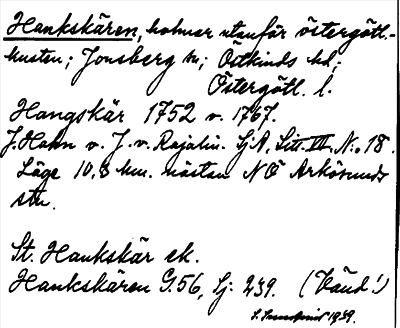 Hankskären, holmar utanför östergötl.-
kusten; Jonsberg sn; Östkinds hd;
Östergötl. l.
Hangskär 1752 v. 1767.
J. Hahn v. J. v. Rajalin. SjA, Litt. VII, N:o 18.
Läge 10,8 km. nästan NO Arkösunds
stn.
St. Hankskär ek.
Hankskären G.56, Sj: 239. (Vänd!)
1939.